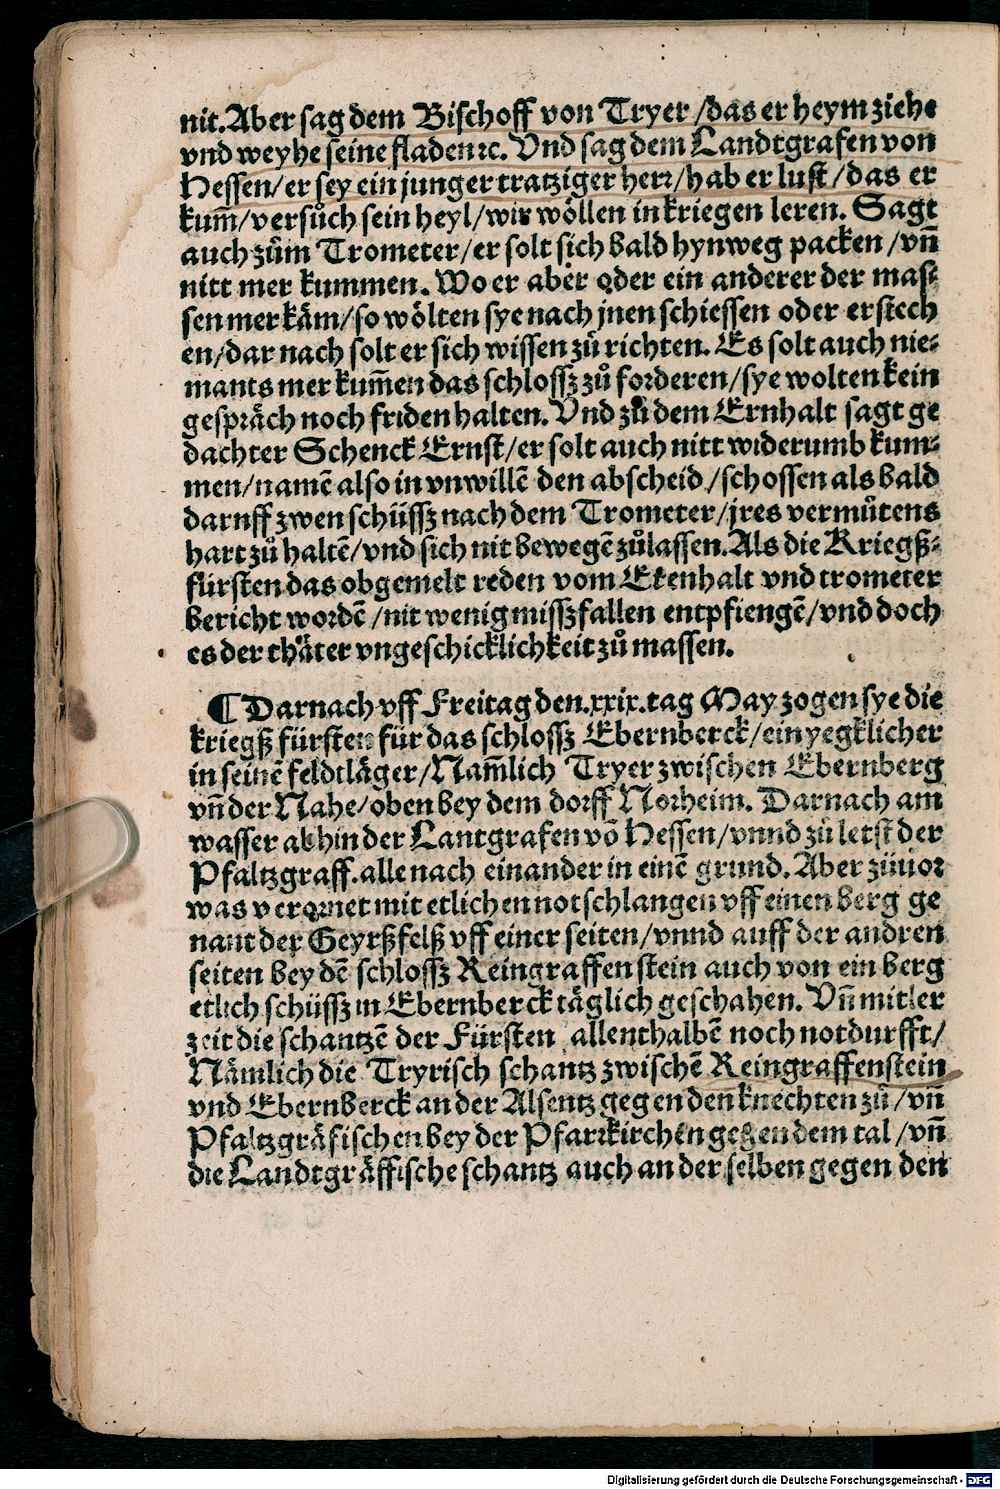 nit. Aber sag dem Bischoff von Tryer / das er heym ziehe
vnd weyhe seine fladen ꝛc. Vnd sag dem Landtgrafen von
Hessen / er sey ein junger tratziger herr / hab er lust / das er
kum̃ / versůch sein heyl / wir wöllen in kriegen leren. Sagt
auch zům Trometer / er solt sich bald hynweg packen / vñ
nitt mer kummen. Wo er aber oder ein anderer der mas⸗
sen mer käm / so wölten sye nach jnen schiessen oder erstech
en / dar nach solt er sich wissen zů richten. Es solt auch nie⸗
mants mer kum̃en das schlossz zů forderen / sye wolten kein
gespräch noch friden halten. Vnd zů dem Ernhalt sagt ge
dachter Schenck Ernst / er solt auch nitt widerumb kum⸗
men / namẽ also in vnwillẽ den abscheid / schossen als bald
darnff zwen schüssz nach dem Trometer / jres vermůtens
hart zů haltẽ / vnd sich nit bewegẽ zůlassen. Als die Kriegß⸗
fürsten das obgemelt reden vom Erenhalt vnd trometer
bericht wordẽ / nit wenig missz fallen entpfiengẽ / vnd doch
es der thäter vngeschicklichkeit zů massen.
¶ Darnach vff Freitag den .xxix. tag May zogen sye die
kriegß fürsten für das schlossz Ebernberck / ein yegklicher
in seinẽ feldtläger / Nam̃lich Tryer zwischen Ebernberg
vñ der Nahe / oben bey dem dorff Norheim. Darnach am
wasser abhin der Lantgrafen võ Hessen / vnnd zů letst der
Pfaltzgraff. alle nach einander in einẽ grund. Aber züuor
was verornet mit etlichen notschlangen vff einen berg ge
nant der Geyrßfelß vff einer seiten / vnnd auff der andren
seiten bey dẽ schlossz Reingraffenstein auch von ein berg
etlich schüssz in Ebernberck täglich geschahen. Vñ mitler
zeit die schantzẽ der Fürsten allenthalbẽ noch notdurfft /
Nämlich die Tryrisch schantz zwischẽ Reingraffenstein
vnd Ebernberck an der Alsentz gegen den knechten zů / vñ
Pfaltzgräfischen bey der Pfarrkirchen gegen dem tal / vñ
die Landtgräffische schantz auch an der selben gegen den
Digitalisierung gefördert durch die Deutsche Forschungsgemeinschaft - DFG